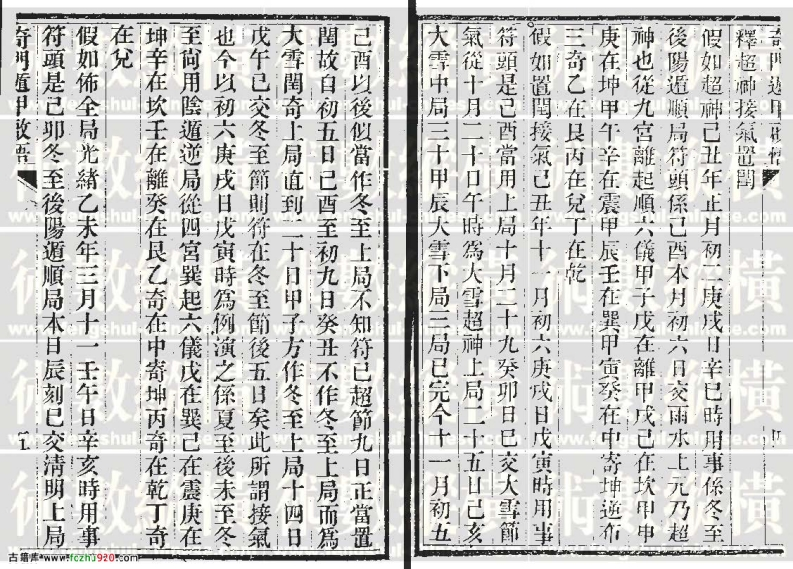 釋超神接氣置閏
假如超神己丑年正月初二庚戌日辛巳時用事係冬至
後陽遁順局符頭係己酉本月初六日交雨水上元乃超
神也從九宮離起順六儀甲子戊在離甲戌己在坎甲申
庚在坤甲午辛在震甲辰壬在巽甲寅癸在中寄坤逆布
三奇乙在艮丙在兌丁在乾
假如置閏接氣己丑年十一月初六庚戌日戊寅時用事
符頭是己酉當用上局十月二十九癸卯日已交大雪節
氣從十月二十日午時為大雪超神上局二十五日己亥
大雪中局三十甲辰大雪下局三局已完今十一月初五
己酉以後似當作冬至上局不知符已超節九日正當置
閏故自初五日己酉至初九日癸丑不作冬至上局而為
大雪閏奇上局直到二十日甲子方作冬至上局十四日
戊午已交冬至節則符在冬至節後五日矣此所謂接氣
也今以初六庚戌日戊寅時為例演之係夏至後未至冬
至尚用陰遁逆局從四宮巽起六儀戊在巽己在震庚在
坤辛在坎壬在離癸在艮乙奇在中寄坤丙奇在乾丁奇
在兌
假如佈全局光緒乙未年三月十一壬午日辛亥時用事
符頭是己卯冬至後陽遁順局本日辰刻已交清明上局
奇門遁甲啟悟
古籍库-www.fczhu920.com
www.fengshui-chinese.com